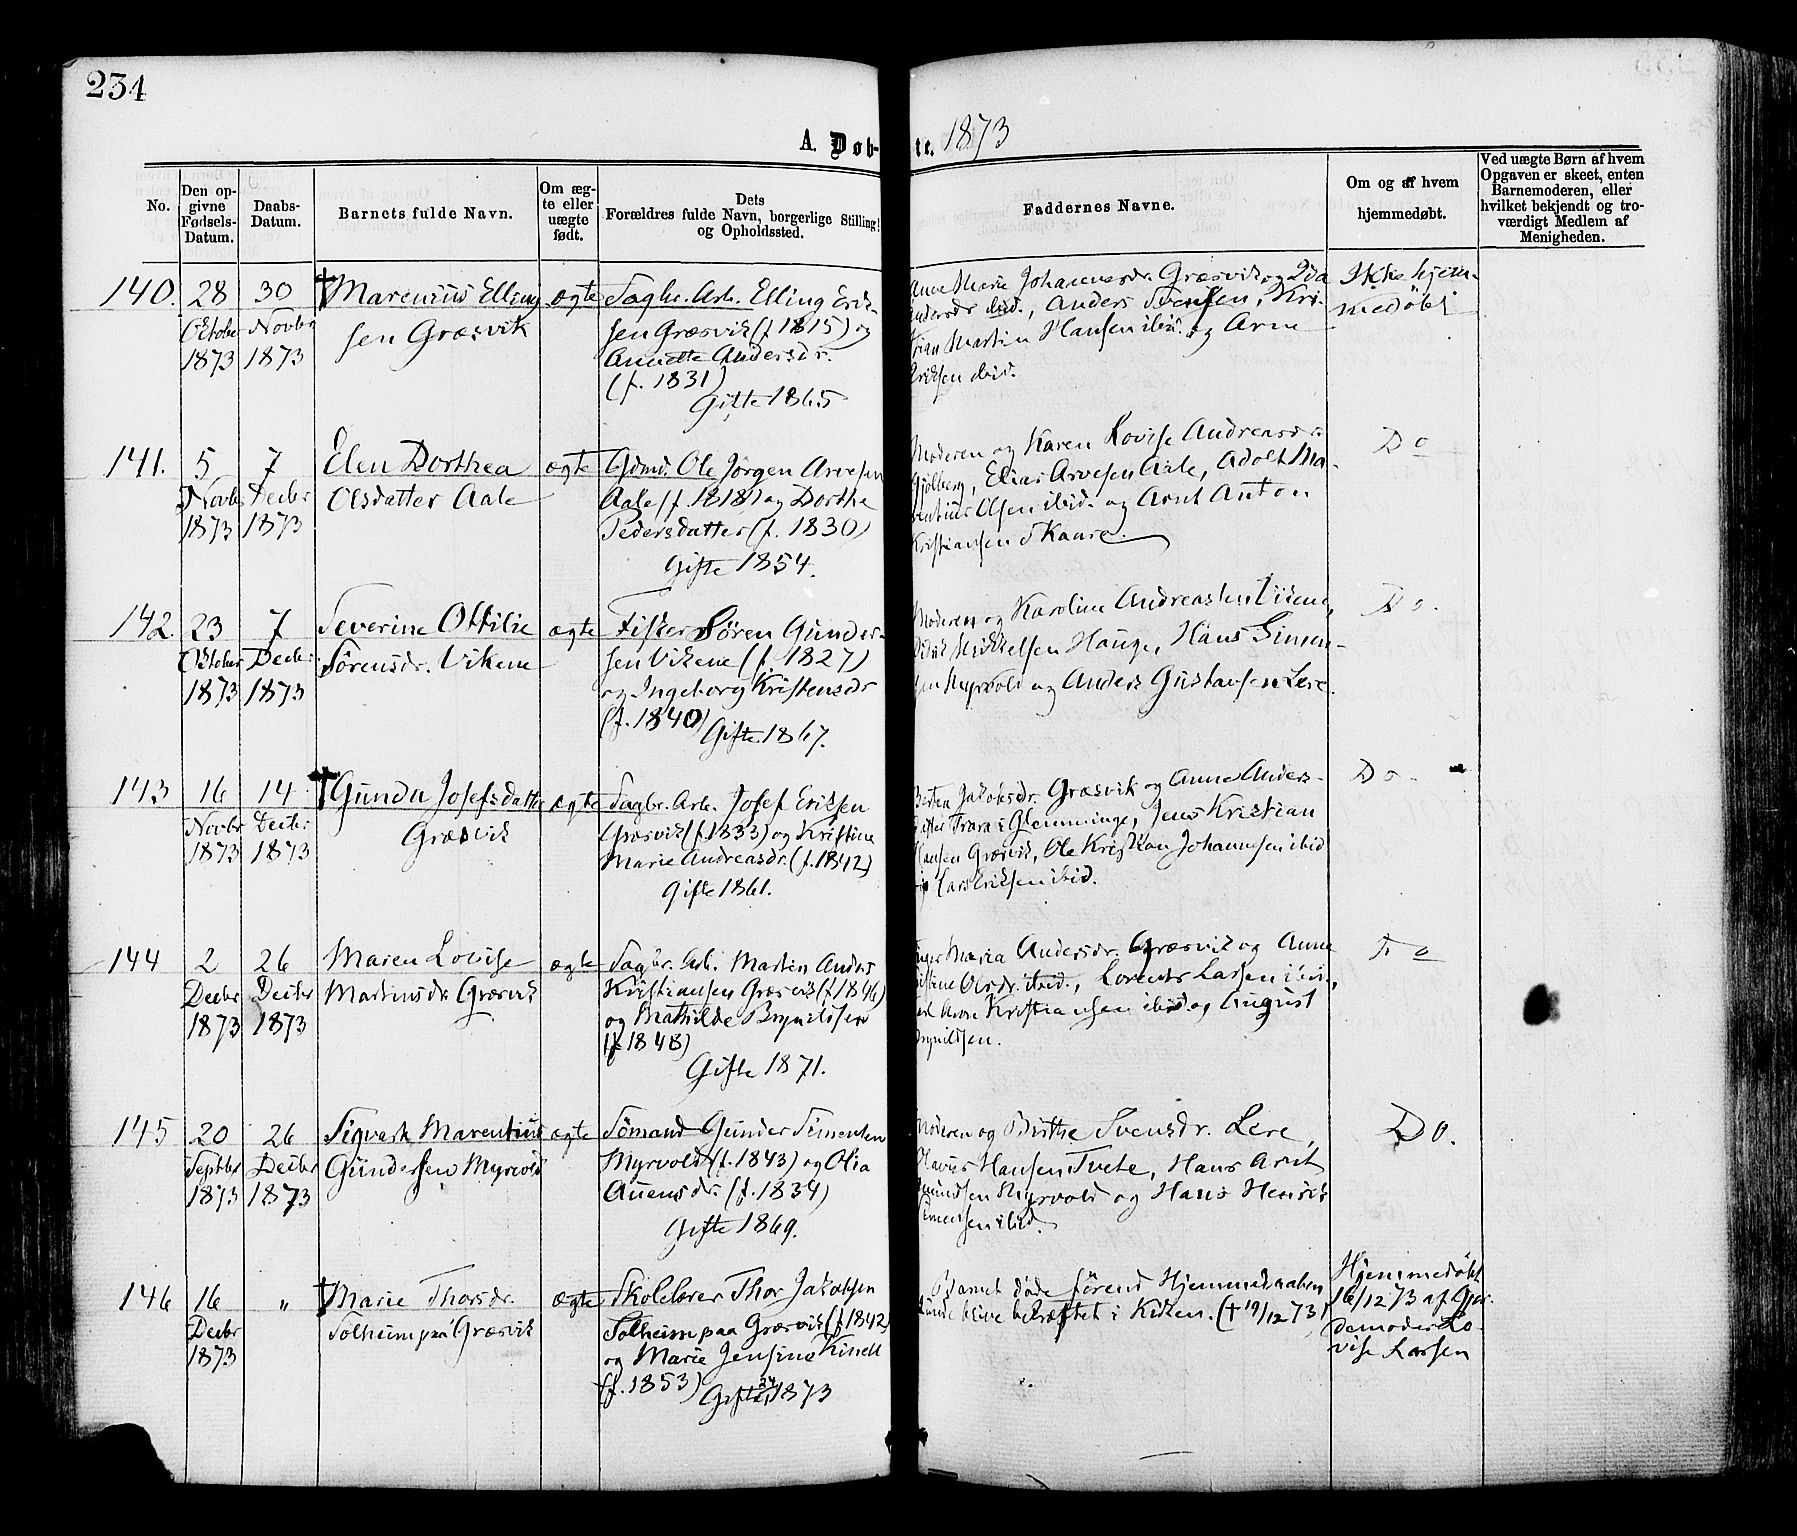 234
A. Døb-
te. 1873
No.
Den op-
givne
Fødsels-
Datum.
Daabs-
Datum.
Barnets fulde Navn.
Om æg-
te eller
uægte
født.
Dets
Forældres fulde Navn, borgerlige Stilling
og Opholdssted.
Faddernes Navne.
Om og af hvem
hjemmedøbt.
Ved uægte Børn af hvem
Opgaven er skeet, enten
Barnemoderen, eller
hvilket bekjendt og tro-
værdigt Medlem af
Menigheden.
140.
28
Octobr
1873
30
Novbr
1873
† Marenius Elling
sen Græsvik
ægte
Sagbr. Arb. Elling Erik-
sen Græsvik (f. 1815) og
Annette Andersdr.
(f. 1831)
Gifte 1865
Anne Marie Johannesdr. Græsvik og
ndersdr ibid., Anders Svensen, Kri-
stian Martin Hansen ibid. og Arne
Eriksen ibid.
Ikke hjem-
medøbt
141.
5
Novbr
1873
7
Decbr
1873
Elen Dorthea
Olsdatter Aale
ægte
Gdmd. Ole Jørgen Arvesen
Aale (f. 1818) og Dorthe
Pedersdatter (f. 1830)
Gifte 1854.
Moderen og Karen Lovise Andreasdr.
Gjølberg, Elias Arvesen Aale, Adolf Ma-
rentius Olsen ibid. og Arnt Anton
Kristiansen Skaare.
Do
142.
23
Octobr
1873
7
Decbr
1873
Severine Ottilie
Sørensdr. Vikene
ægte
Fisker Søren Gunder-
sen Vikene (f. 1827)
og Ingeborg Kristensdr
(f. 1840)
Gifte 1867.
Moderen og Karoline Andreasen Vikene,
Mikkelsen Hauge, Hans Simen-
sen Myrvold og Anders Gustavsen Lere.
Do.
143
16
Novbr
1873
14
Decbr
1873
† Gunda Josefsdatter
Græsvik
ægte
Sagbr. Arb. Josef Eriksen
Græsvik (f. 1833) og Kristine
Marie Andreasdr. (f. 1842)
Gifte 1861.
Jakobsdr. Græsvik og Anne Anders-
datter Trara i Glemminge, Jens Kristian
Hansen Græsvik, Ole Kristian Johannesen ibid
og Lars Eriksen ibid.
Do
144
2
Decbr
1873
26
Decbr
1873
Maren Lovise
Martinsdr. Græsvik
ægte
Sagbr. Arb. Martin Anders
Kristiansen Græsvik (f. 1846)
og Mathilde Brynildsen
(f. 1848)
Gifte 1871.
Inger Maria Andersdr. Græsvik og Anne
Kristine Olsdr. ibid., Lorents Larsen ibid.,
Kristiansen ibid. og August
Brynildsen.
Do
145
20
Septbr
1873
26
Decbr
1873
Sigvart Marentius
Gundersen Myrvold
ægte
Sømand Gunder Simensen
Myrvold (f. 1843) og Olia
Auensdr. (f. 1834)
Gifte 1869.
Moderen og Birthe Svensdr. Lere,
Olavus Hansen Tvete, Hans Arnt
Myrvold og Hans Henrik
Simensen ibid.
Do.
146
16
Decbr
1873
"
† Marie Thorsdr.
Solheim paa Græsvik
ægte
Skolelærer Thor Jakobsen
Solheim paa Græsvik (f. 1842)
og Marie Jensine Kinell
(f. 1853)
Gifte 1873
Barnet døde førend Hjemmedaaben
kunde blive bekræftet i Kirken. († 19/12 73)
Hjemmedøbt
16/12 73 af Gjor-
demoder Lo-
vise Larsen